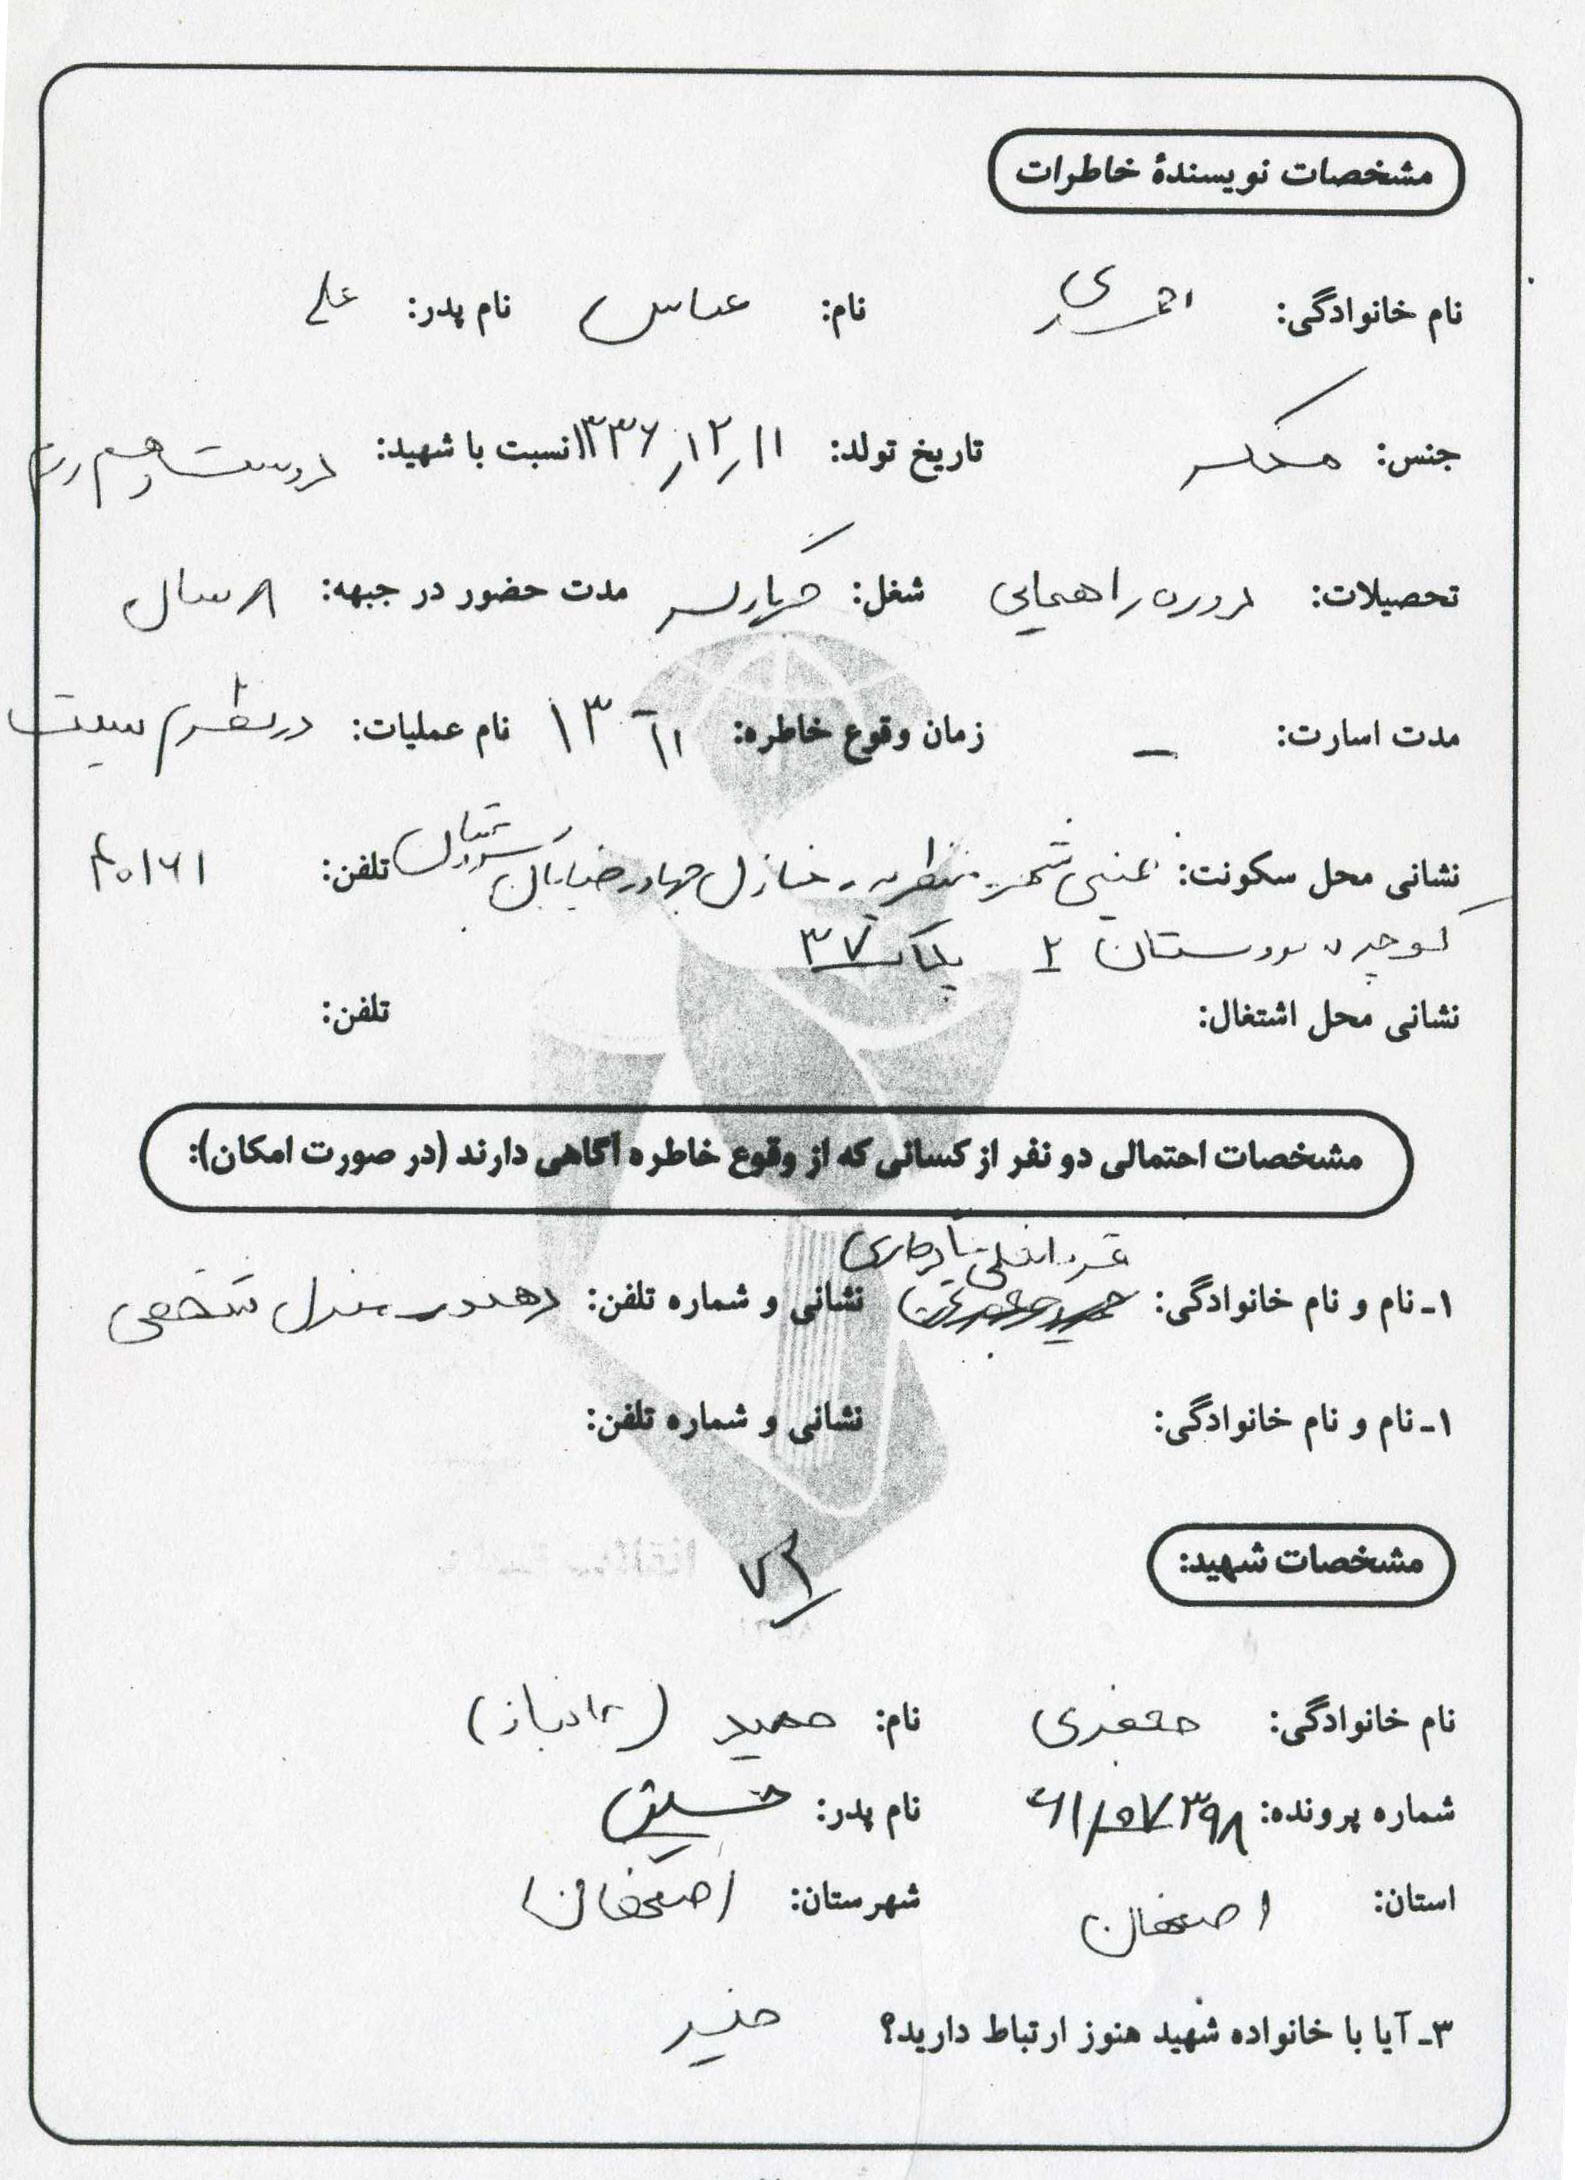 مشخصات نویسندهٔ خاطرات
نام خانوادگی: احمدی نام: عباس نام پدر: علی
جنس: مذکر تاریخ تولد: ۱۳۳۶/۱۲/۱۱ نسبت با شهید: دوست و هم رزم
تحصیلات: دوره راهنمایی شغل: مدت حضور در جبهه: ۸ سال
مدت اسارت: – زمان وقوع خاطره: نام عملیات: در نظرم نیست
نشانی محل سکونت: خمینی شهر منظریه - منازل جهاد خیابان تلفن: ۴۰۱۶۱
کوچه بوستان ۲ پلاک ۳۷
نشانی محل اشتغال: تلفن:
مشخصات احتمالی دو نفر از کسانی که از وقوع خاطره آگاهی دارند (در صورت امکان):
۱ـ نام و نام خانوادگی: نشانی و شماره تلفن: منزل شخصی
۱ـ نام و نام خانوادگی: نشانی و شماره تلفن:
مشخصات شهید:
۷۳
نام خانوادگی: جعفری نام: حمید (جانباز)
شماره پرونده: نام پدر: حسین
استان: اصفهان شهرستان: اصفهان
۳ـ آیا با خانواده شهید هنوز ارتباط دارید؟ خیر